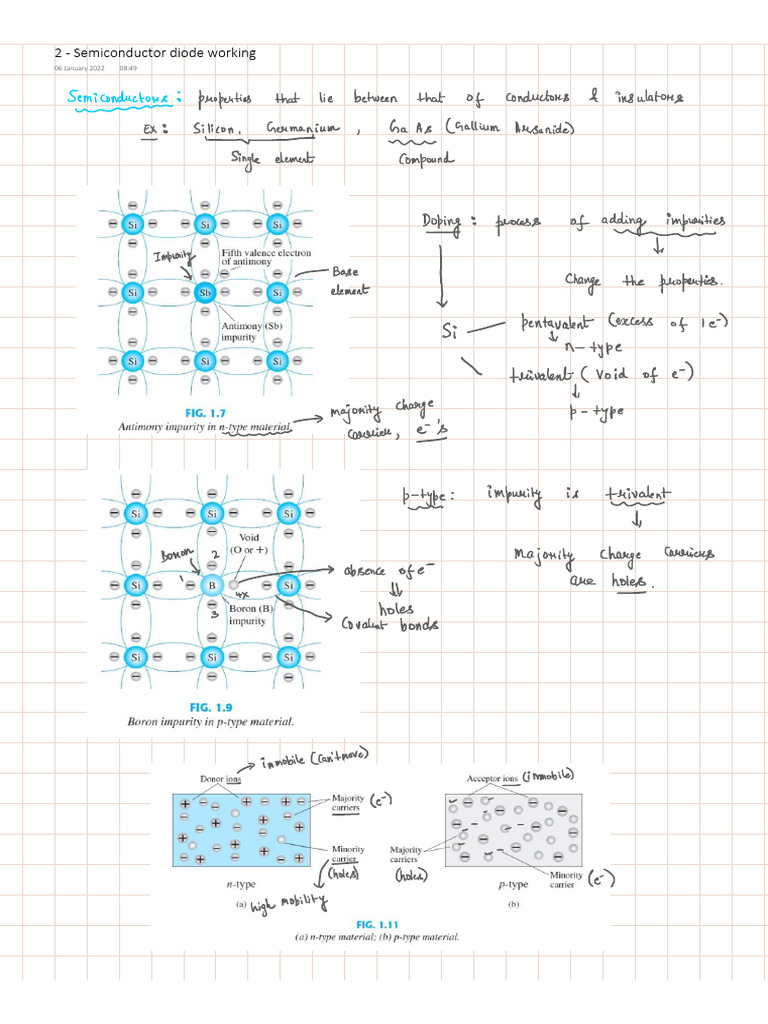 2 - Semiconductor diode working
06 January 2022 08:49
Semiconductors: properties that lie between that of conductors & insulators
Ex: Silicon, Germanium, GaAs (Gallium Arsanide)
Single element Compound
Doping: process of adding impurities
Change the properties.
Si
pentavalent (excess of 1e⁻)
n-type
trivalent (void of e⁻)
p-type
Si Si Si
Impurity
Fifth valence electron
of antimony
Base
element
Si Sb Si
Antimony (Sb)
impurity
Si Si Si
FIG. 1.7
Antimony impurity in n-type material.
majority charge
carrier, e⁻'s
p-type: impurity is trivalent
Majority charge carriers
are holes.
Si Si Si
Void
(O or +)
Boron
2
1
Si B Si
4x
3
Boron (B)
impurity
absence of e⁻
holes
Covalent bonds
Si Si Si
FIG. 1.9
Boron impurity in p-type material.
immobile (can't move)
Donor ions
Majority
carriers (e⁻)
Minority
carrier
(holes)
high mobility
n-type
(a)
Acceptor ions (immobile)
Majority
carriers
(holes)
Minority
carrier (e⁻)
p-type
(b)
FIG. 1.11
(a) n-type material; (b) p-type material.